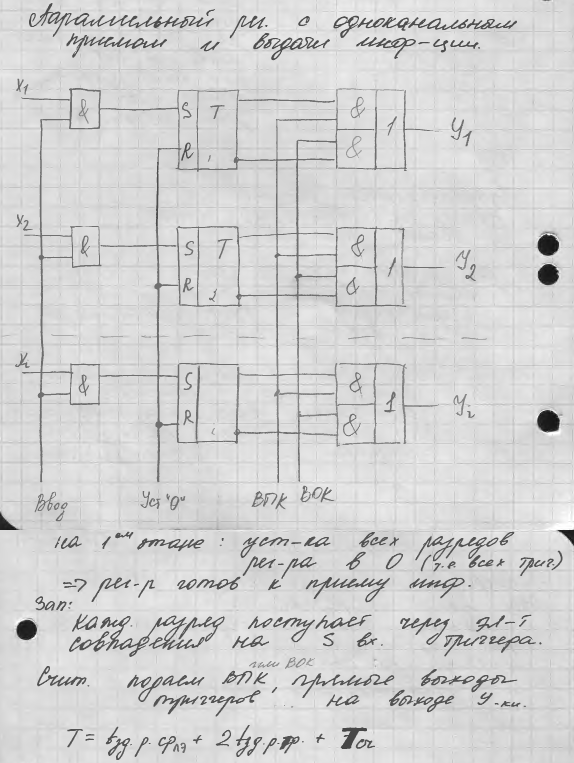 Параллельный рг. с одноканальным
приемом и выдачи инф-ции.
X1 & S T & 1 У1
R 1 &
X2 & S T & 1 У2
R 2 &
Xi & S & 1 Уi
R &
Ввод Уст "0" ВПК ВОК
на 1ом этапе: уст-ка всех разредов
рег-ра в 0 (т.е. всех триг.)
=> рег-р готов к приему инф.
Зап:
Кажд. разряд поступает через эл-т
совпадения на S вх. триггера.
или ВОК
Счит. подаем ВПК, прямые выходы
триггеров .. на выходе У-ки.
T = tзд.р.ср лэ + 2 tзд.р.тр. +